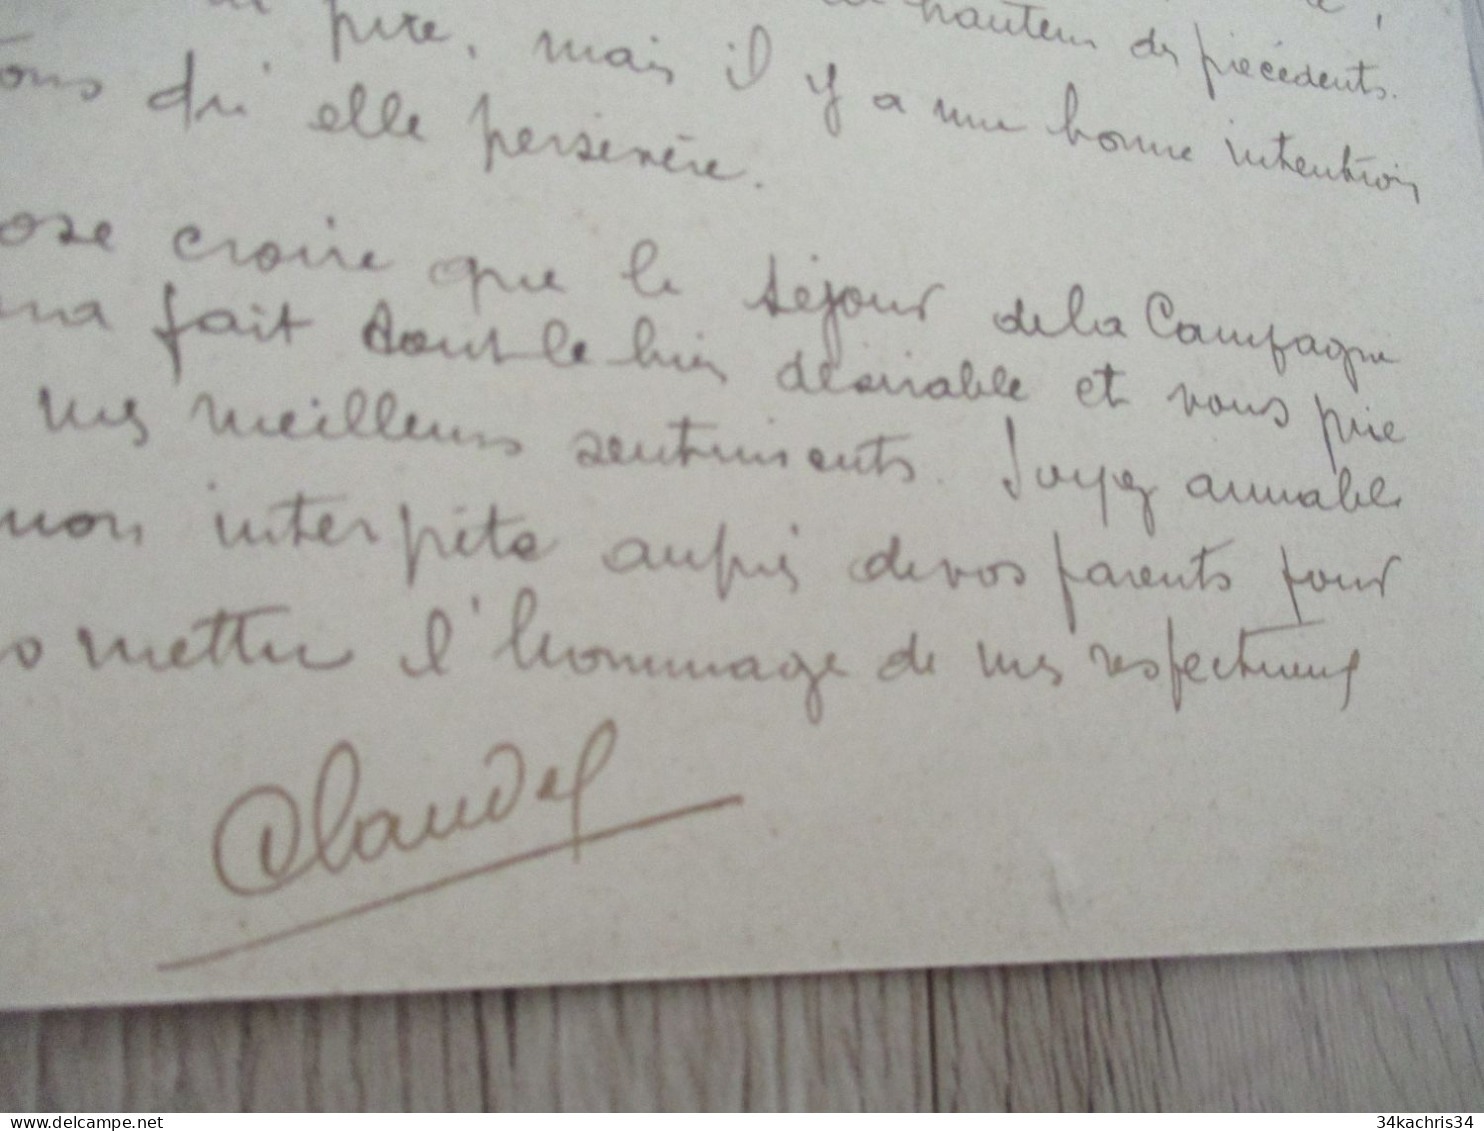 hauteur des précédents.
pire, mais il y a une bonne intention
qu'elle persévère.
ose croire que le séjour de la Campagne
fait tout le bien désirable et vous prie
mes meilleurs sentiments. Soyez aimable
mon interprète auprès de vos parents pour
mettre l'hommage de mes respectueux
Claudel
delcampe.net
34kachris34